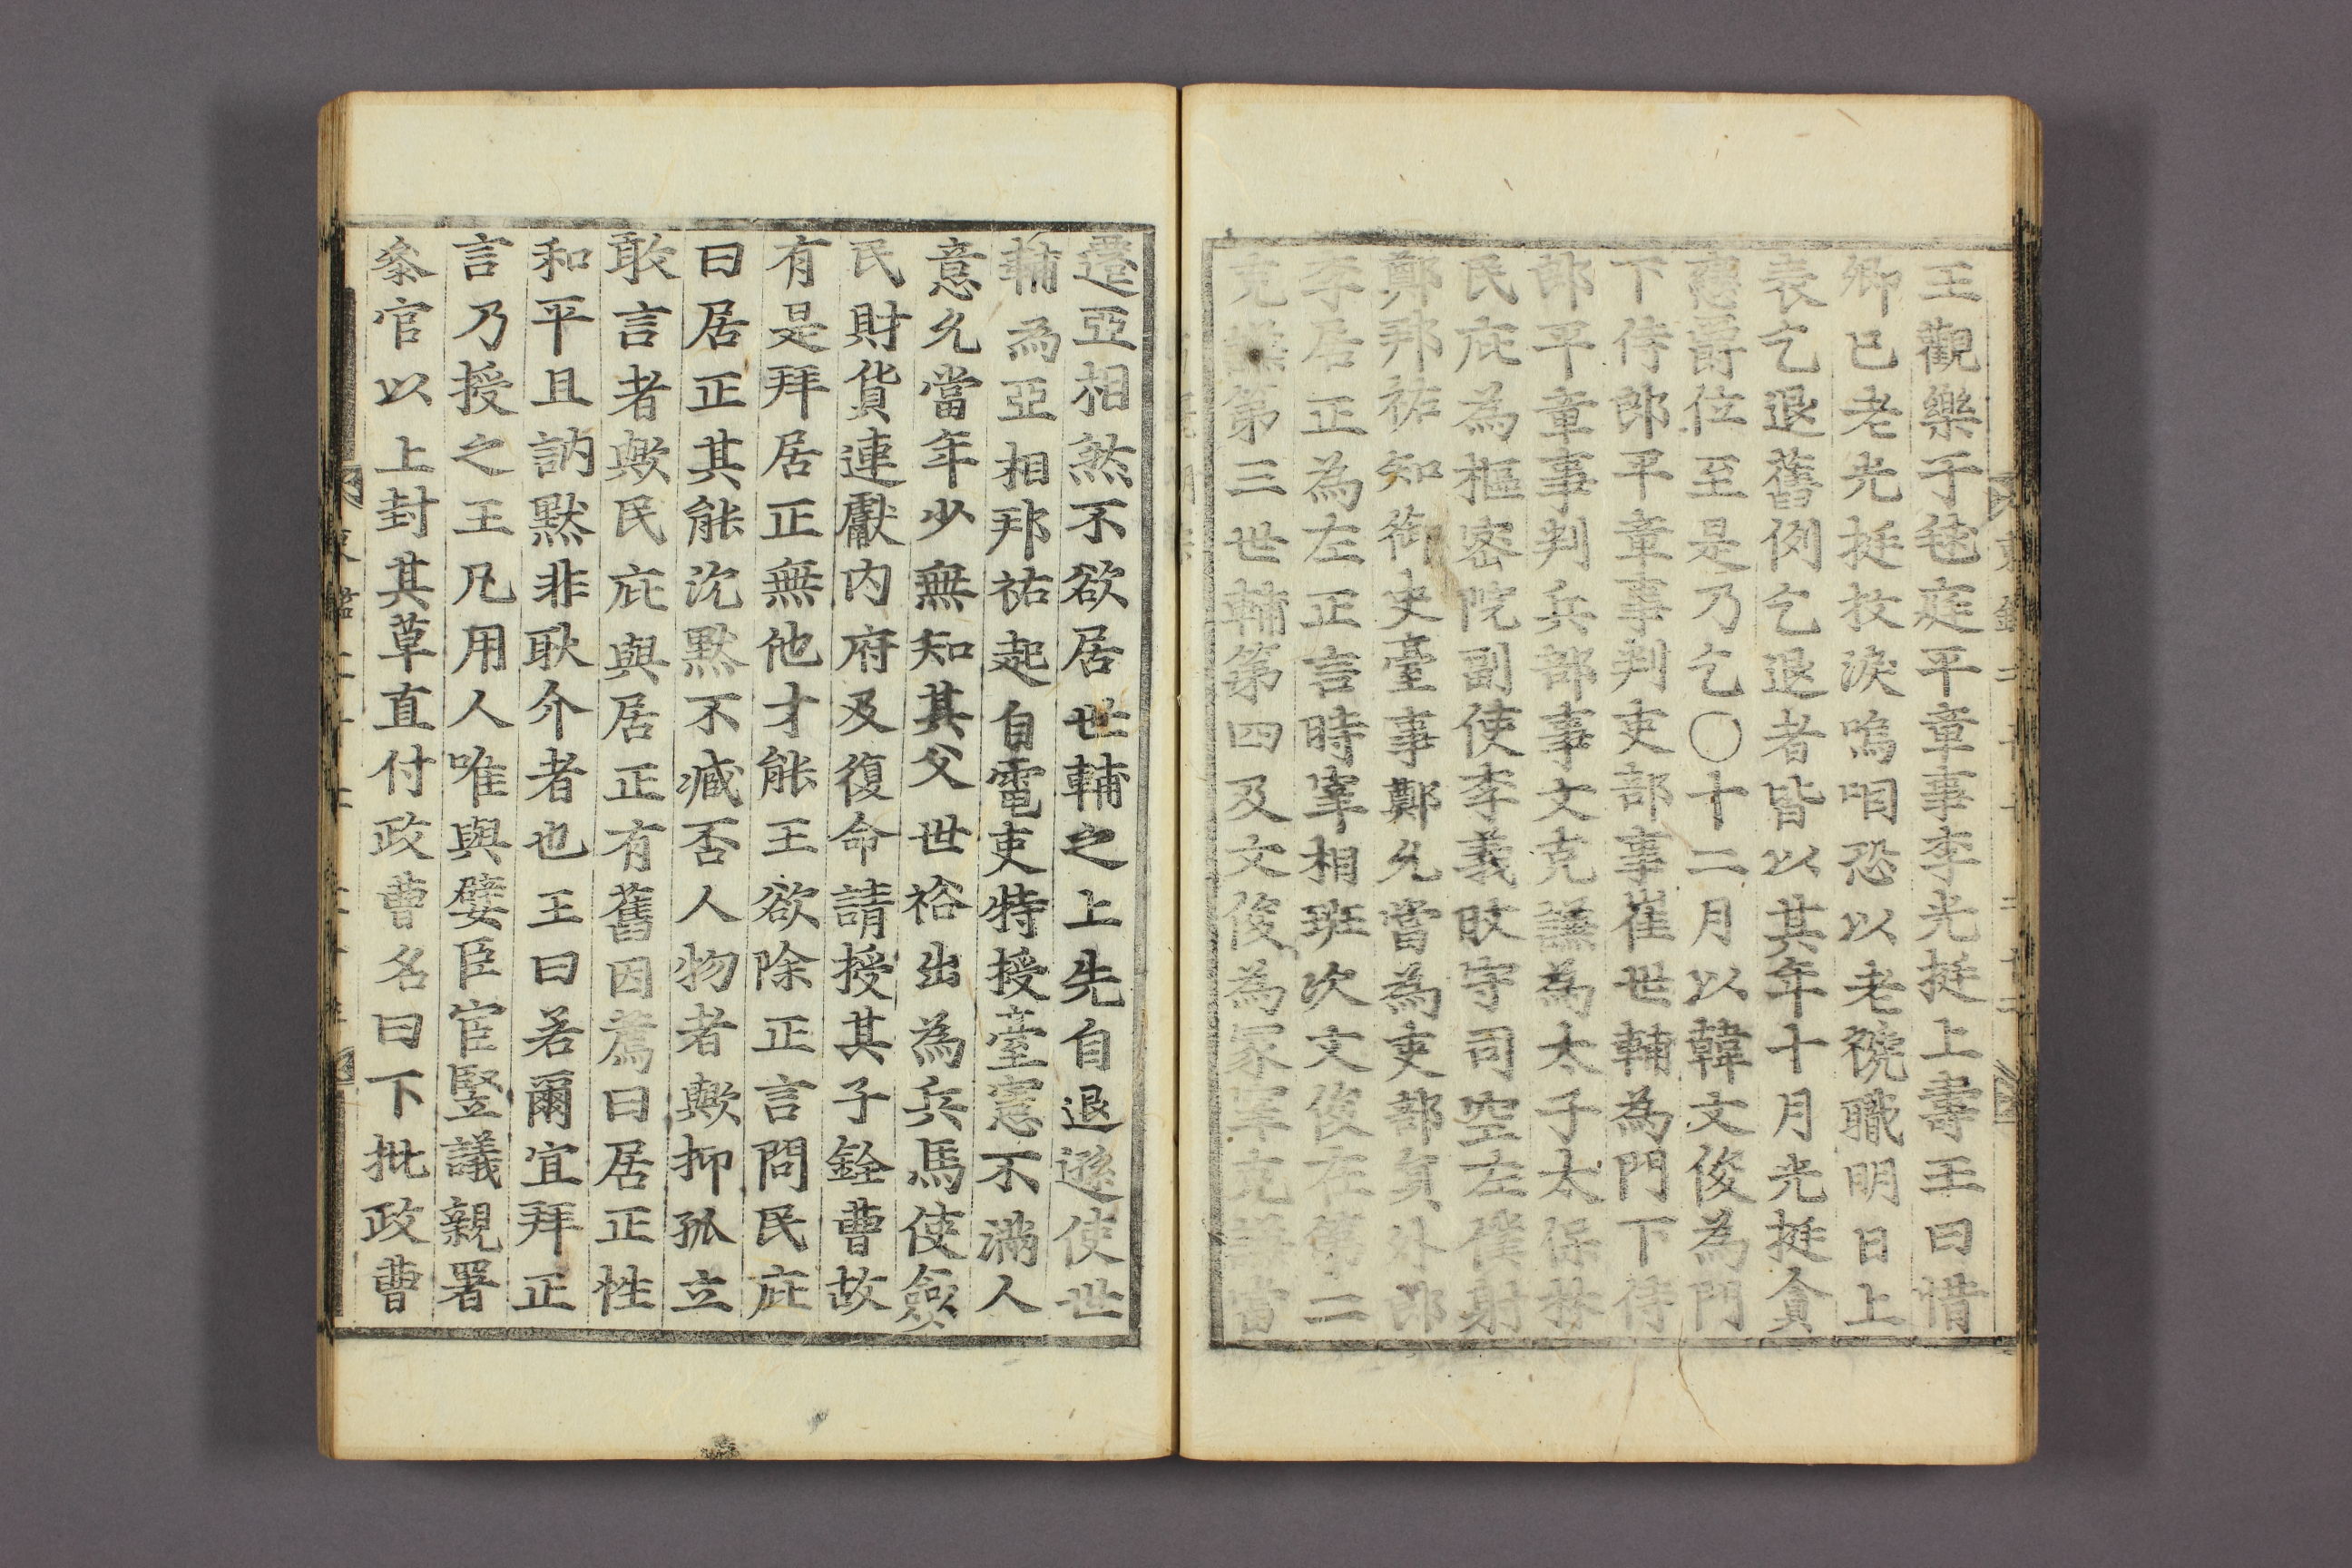 王觀樂于毬庭平章事李光挺上壽王曰惜
卿已老光挺抆淚嗚咽恐以老褫職明日上
表乞退舊例乞退者皆以其年十月光挺貪
戀爵位至是乃乞〇十二月以韓文俊爲門
下侍郎平章事判吏部事崔世輔為門下侍
郎平章事判兵部事文克謙為太子太保林
民庇為樞密院副使李義旼守司空左僕射
鄭邦祐知御史臺事鄭允當為吏部員外郎
李居正為左正言時宰相班次文俊在第二
克謙第三世輔第四及文俊為冢宰克謙當
遷亞相然不欲居世輔之上先自退遜使世
輔為亞相邦祐起自電吏特授臺憲不滿人
意允當年少無知其父世裕出為兵馬使斂
民財貨連獻内府及復命請授其子銓曹故
有是拜居正無他才能王欲除正言問民庇
曰居正其能沉默不臧否人物者歟抑孤立
敢言者歟民庇與居正有舊因薦曰居正性
和平且訥默非耿介者也王曰若爾宜拜正
言乃授之王凡用人唯與嬖臣宦竪議親署
叅官以上封其草直付政曹名曰下批政曹